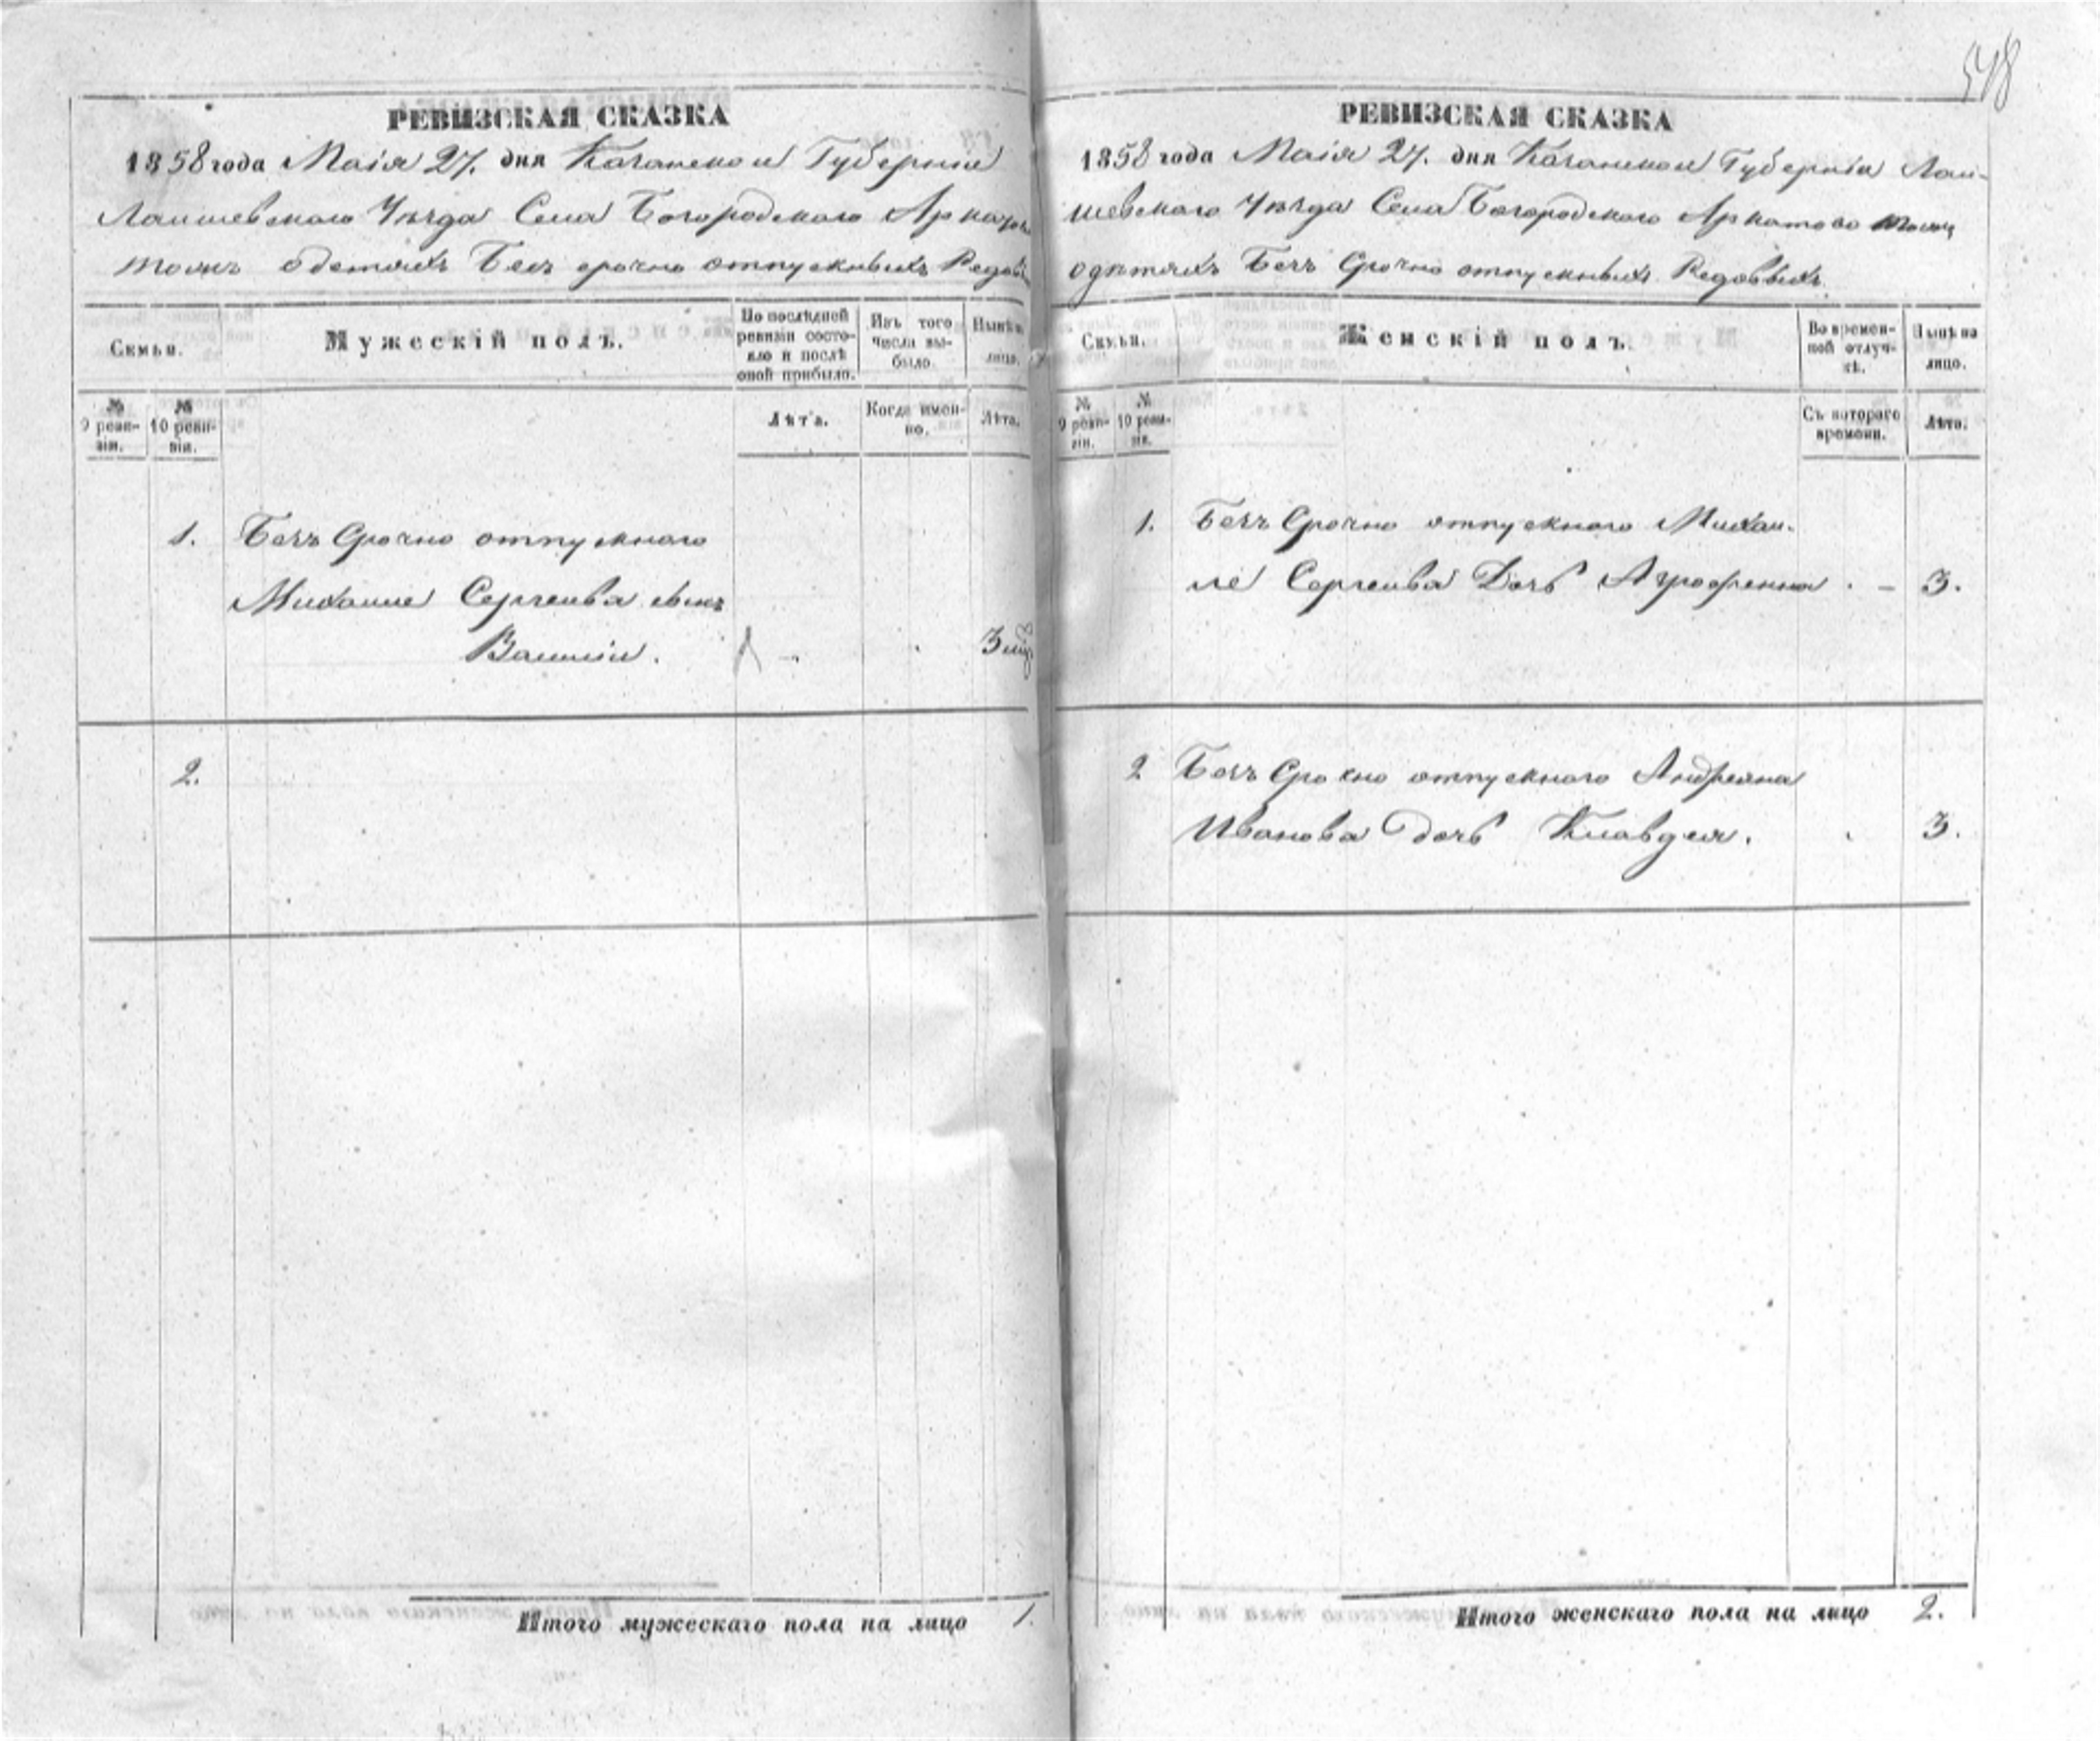 548
РЕВИЗСКАЯ СКАЗКА
1858 года Маія 27. дня Казанской Губерніи
Лаишевскаго Уѣзда Села Богородскаго
одетяхъ Безъ срочно отпускныхъ
Семьи.
Мужескій полъ.
По послѣдней ревизіи состояло и послѣ оной прибыло.
Изъ того числа выбыло.
Нынѣ на лицо.
№ 9 ревизіи.
№ 10 ревизіи.
Лѣта.
Когда именно.
Лѣта.
1. Безъ Срочно отпускного
Михаиле Сергеива сынъ
Василіи . 3
2.
Итого мужескаго пола на лицо 1.
РЕВИЗСКАЯ СКАЗКА
1858 года Маія 27. дня Казанской Губерніи Лаи-
шевскаго Уѣзда Села Богородскаго Аркатово
одѣтяхъ Безъ Срочно отпускныхъ Редовыхъ
Семьи.
Женскій полъ.
Во времен-
ной отлуч-
кѣ.
Нынѣ на
лицо.
№
9 реви-
зіи.
№
10 реви-
зіи.
Съ котораго
времени.
Лѣта.
1. Безъ Срочно отпускного Михаи-
ле Сергеива Дочь Аграфенна . – 3.
2 Безъ Срочно отпускного Андреяна
Иванова дочь Клавдея . 3.
Итого женскаго пола на лицо 2.